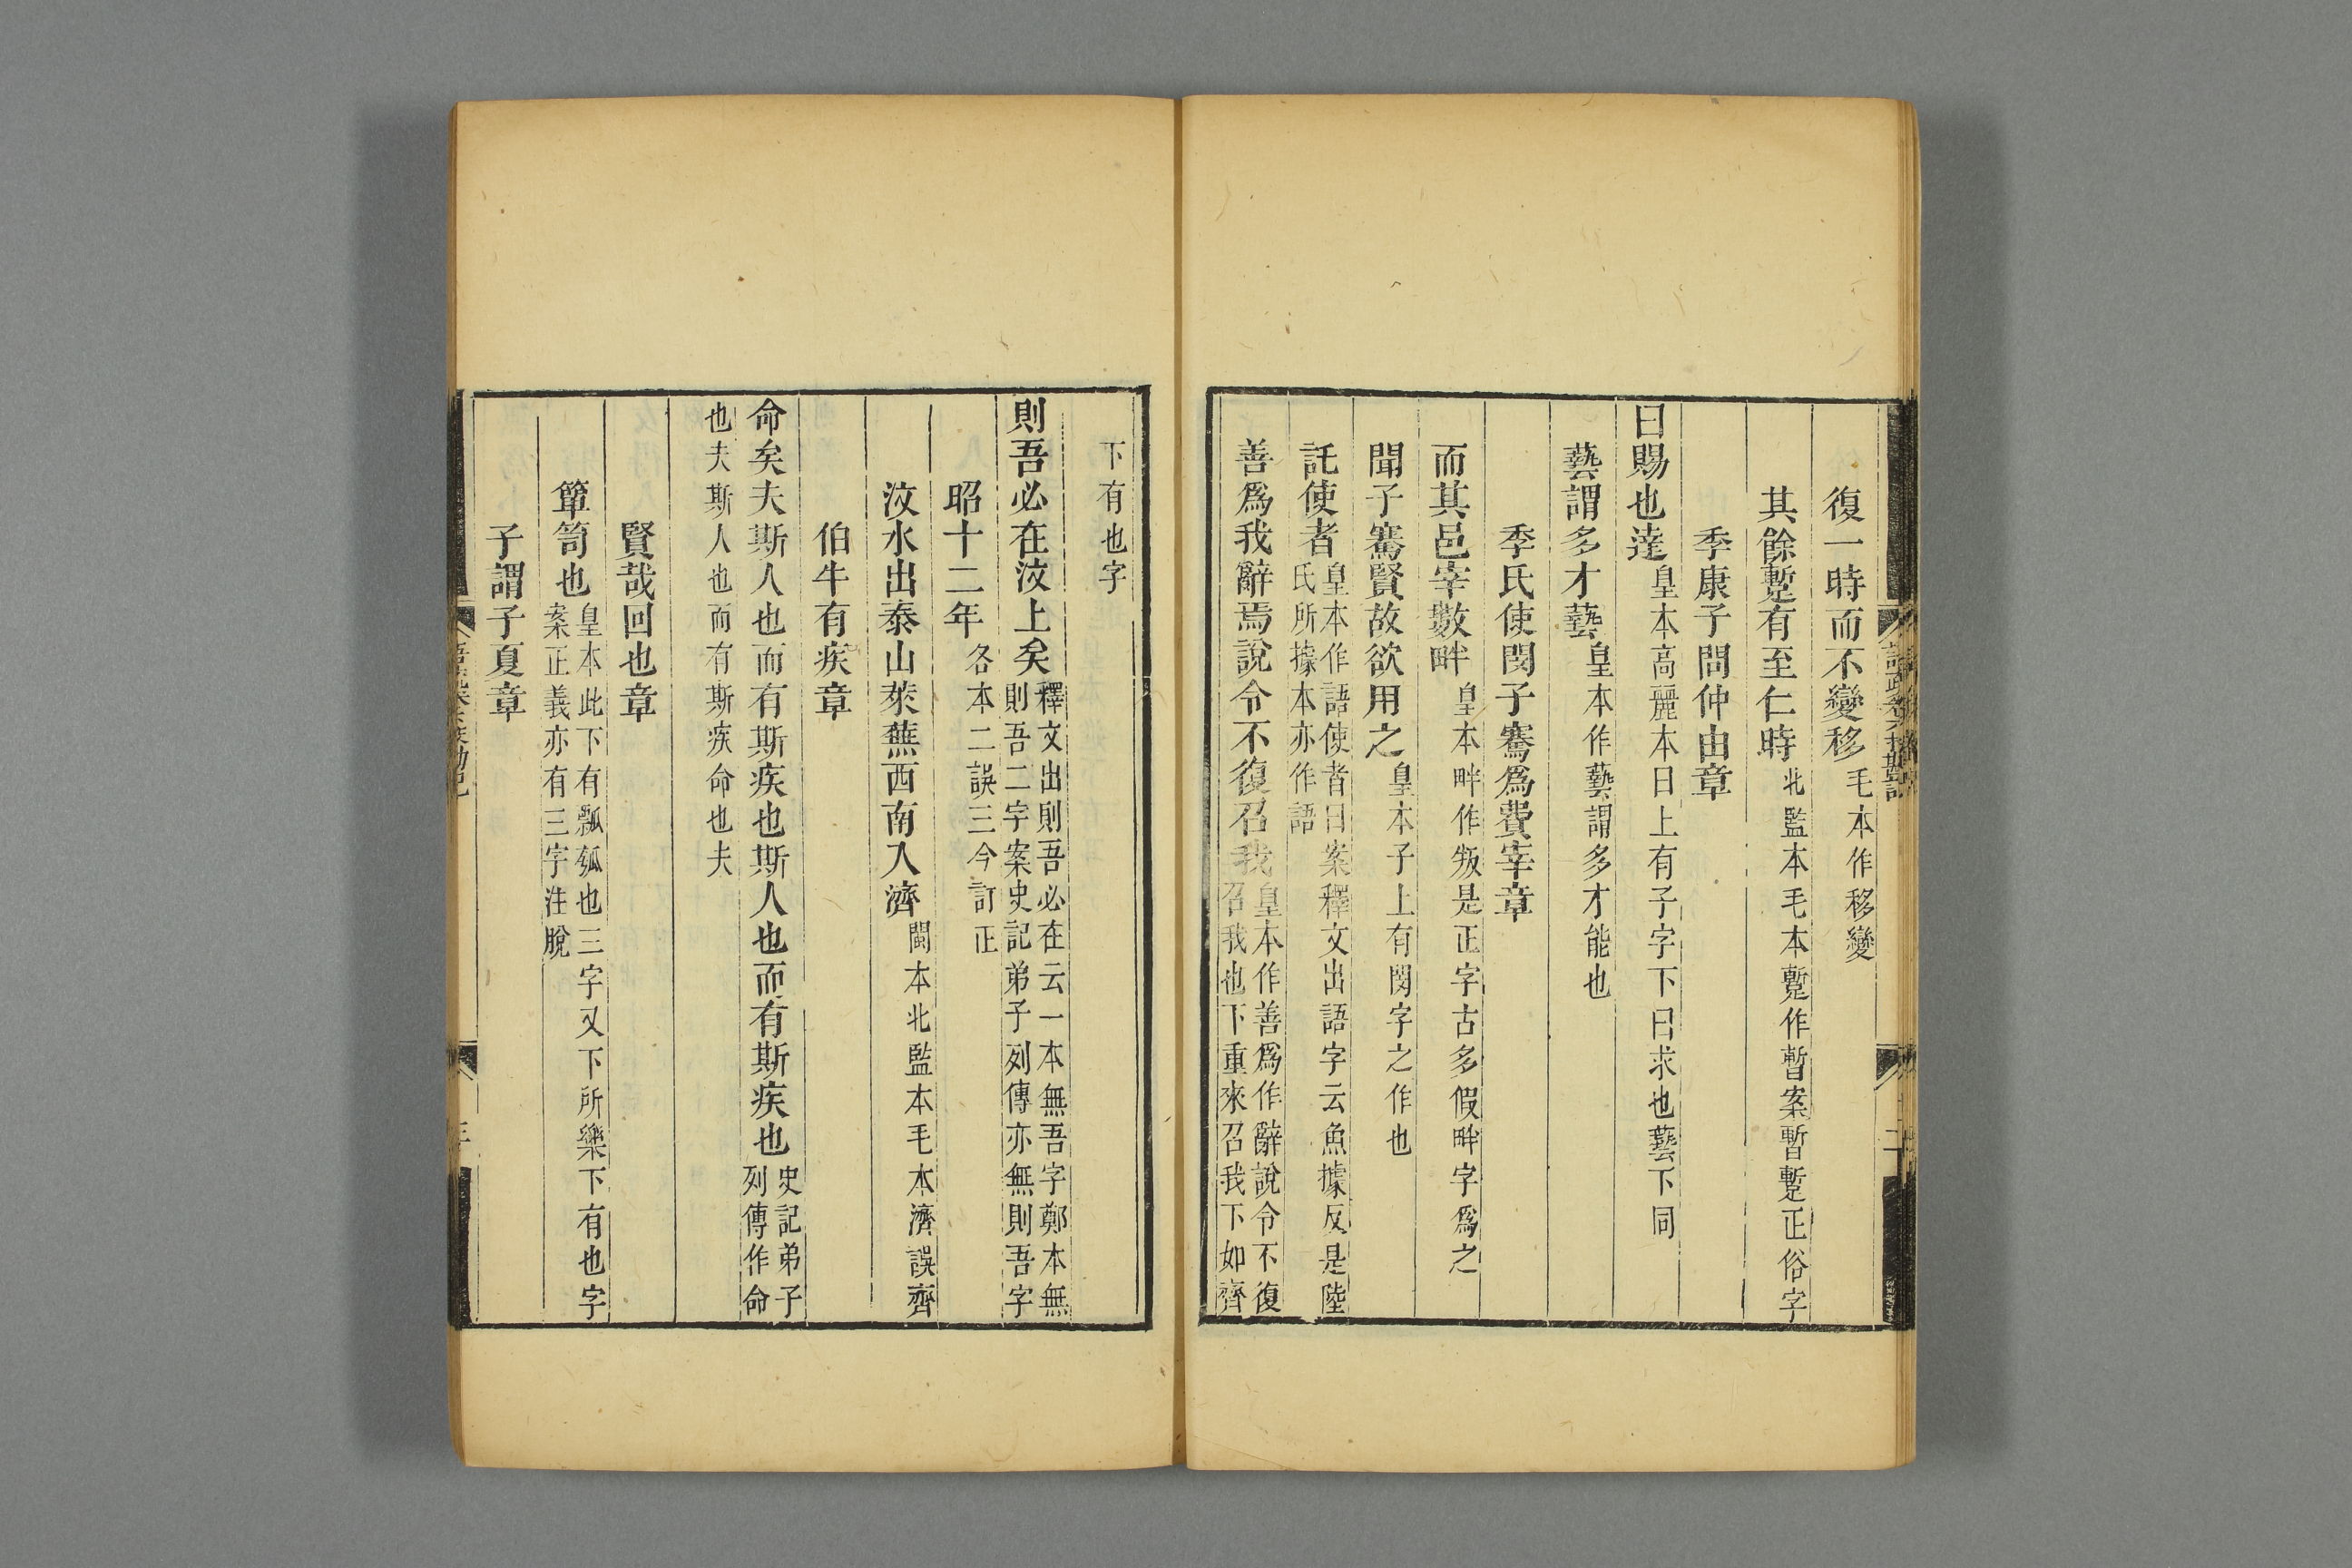 復一時而不變移毛本作移變
其餘蹔有至仁時北監本毛本蹔作暫案暫蹔正俗字
季康子問仲由章
曰賜也達皇本高麗本曰上有子字下曰求也藝下同
藝謂多才藝皇本作藝謂多才能也
季氏使閔子騫爲費宰章
而其邑宰數畔皇本畔作叛是正字古多假畔字爲之
聞子騫賢故欲用之皇本子上有閔字之作也
託使者皇本作語使者曰案釋文出語字云魚據反是陸
氏所據本亦作語
善爲我辭焉說令不復召我皇本作善爲作辭說令不復
召我也下重來召我下如齊
下有也字
則吾必在汶上矣釋文出則吾必在云一本無吾字鄭本無
則吾二字案史記弟子列傳亦無則吾字
昭十二年各本二誤三今訂正
汶水出泰山萊蕪西南入濟閩本北監本毛本濟誤齊
伯牛有疾章
命矣夫斯人也而有斯疾也斯人也而有斯疾也史記弟子
列傳作命
也夫斯人也而有斯疾命也夫
賢哉回也章
簞笥也皇本此下有瓢瓠也三字又下所樂下有也字
案正義亦有三字注脫
子謂子夏章